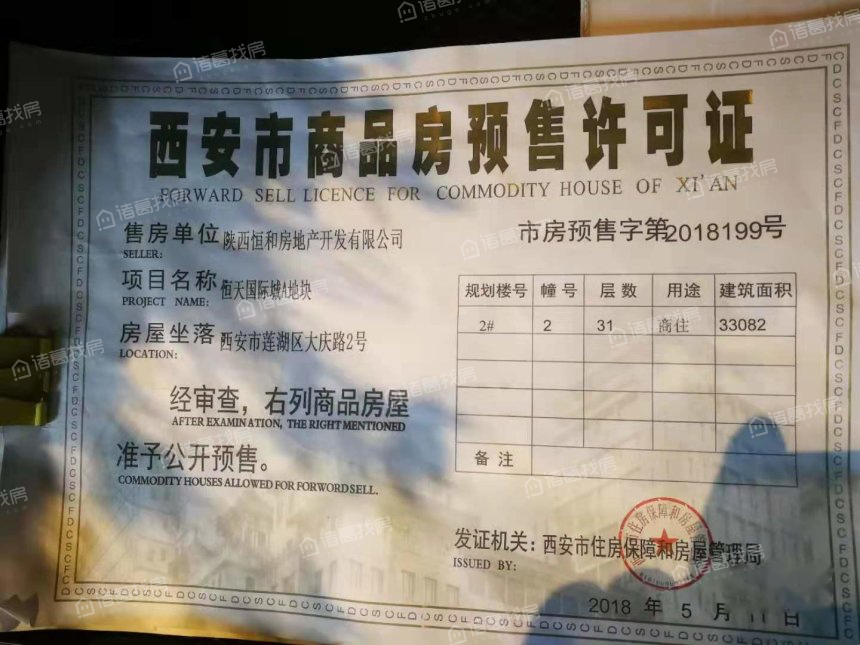 西安市商品房预售许可证
FORWARD SELL LICENCE FOR COMMODITY HOUSE OF XI'AN
市房预售字第2018199号
售房单位 陕西恒和房地产开发有限公司
SELLER:
项目名称 恒天国际城A地块
PROJECT NAME:
房屋坐落 西安市莲湖区大庆路2号
LOCATION:
经审查，右列商品房屋
AFTER EXAMINATION, THE RIGHT MENTIONED
准予公开预售。
COMMODITY HOUSES ALLOWED FOR FORWORD SELL.
规划楼号 幢号 层数 用途 建筑面积
2# 2 31 商住 33082
备注
发证机关：西安市住房保障和房屋管理局
ISSUED BY:
2018 年 5 月 11 日
诸葛找房